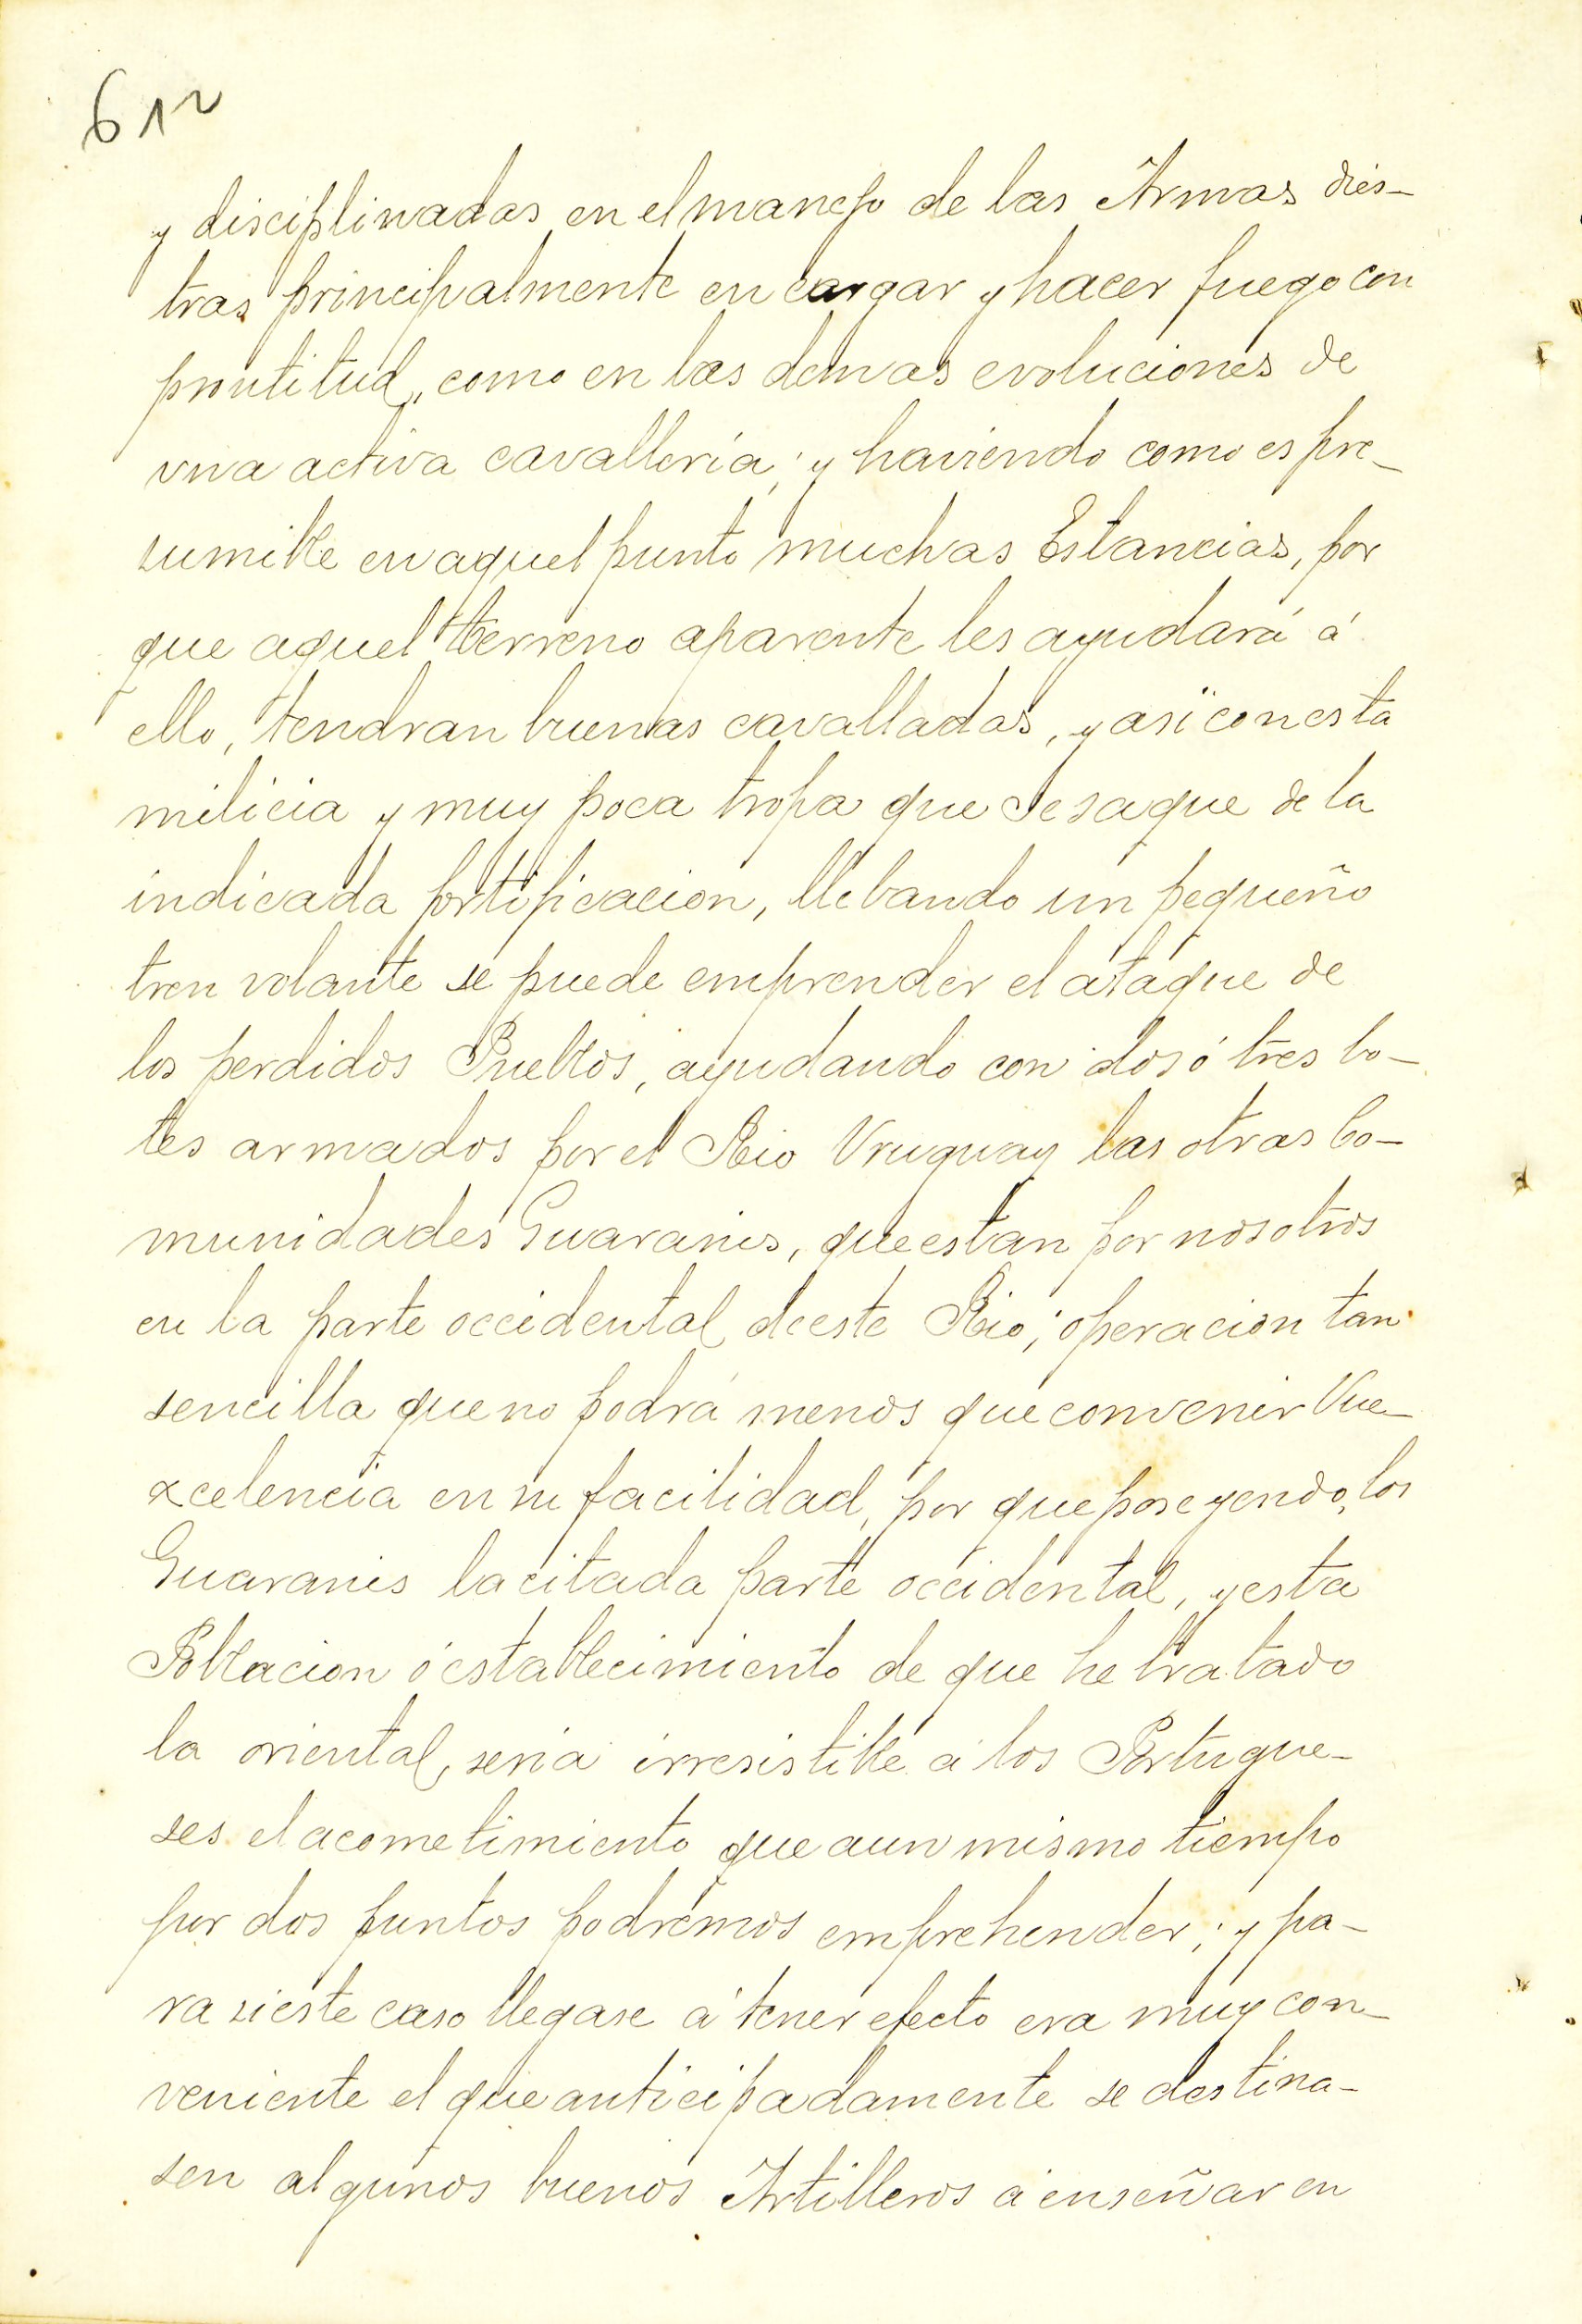 61v
y disciplinadas en el manejo de las Armas dies-
tras principalmente en cargar y hacer fuego con
prontitud, como en las demas evoluciones de
una activa cavallería; y haviendo como es pre-
sumible en aquel punto muchas Estancias, por
que aquel terreno aparente les ayudará á
ello, tendran buenas cavalladas, y asi con esta
milicia y muy poca tropa que se saque de la
indicada fortificacion, llebando un pequeño
tren volante se puede emprender el ataque de
los perdidos Pueblos, ayudando con dos ó tres bo-
tes armados por el Rio Vruguay las otras Co-
munidades Guaranis, que estan por nosotros
en la parte occidental de este Rio; operacion tan
sencilla que no podrá menos que convenir Vue-
xcelencia en su facilidad, por que poseyendo los
Guaranis la citada parte occidental, y esta
Poblacion ó establecimiento de que he tratado
la oriental, seria irresistible á los Portugue-
ses el acometimiento que a un mismo tiempo
por dos puntos podremos emprehender; y pa-
ra si este caso llegase á tener efecto era muy con-
veniente el que anticipadamente se destina-
sen algunos buenos Artilleros á enseñar en